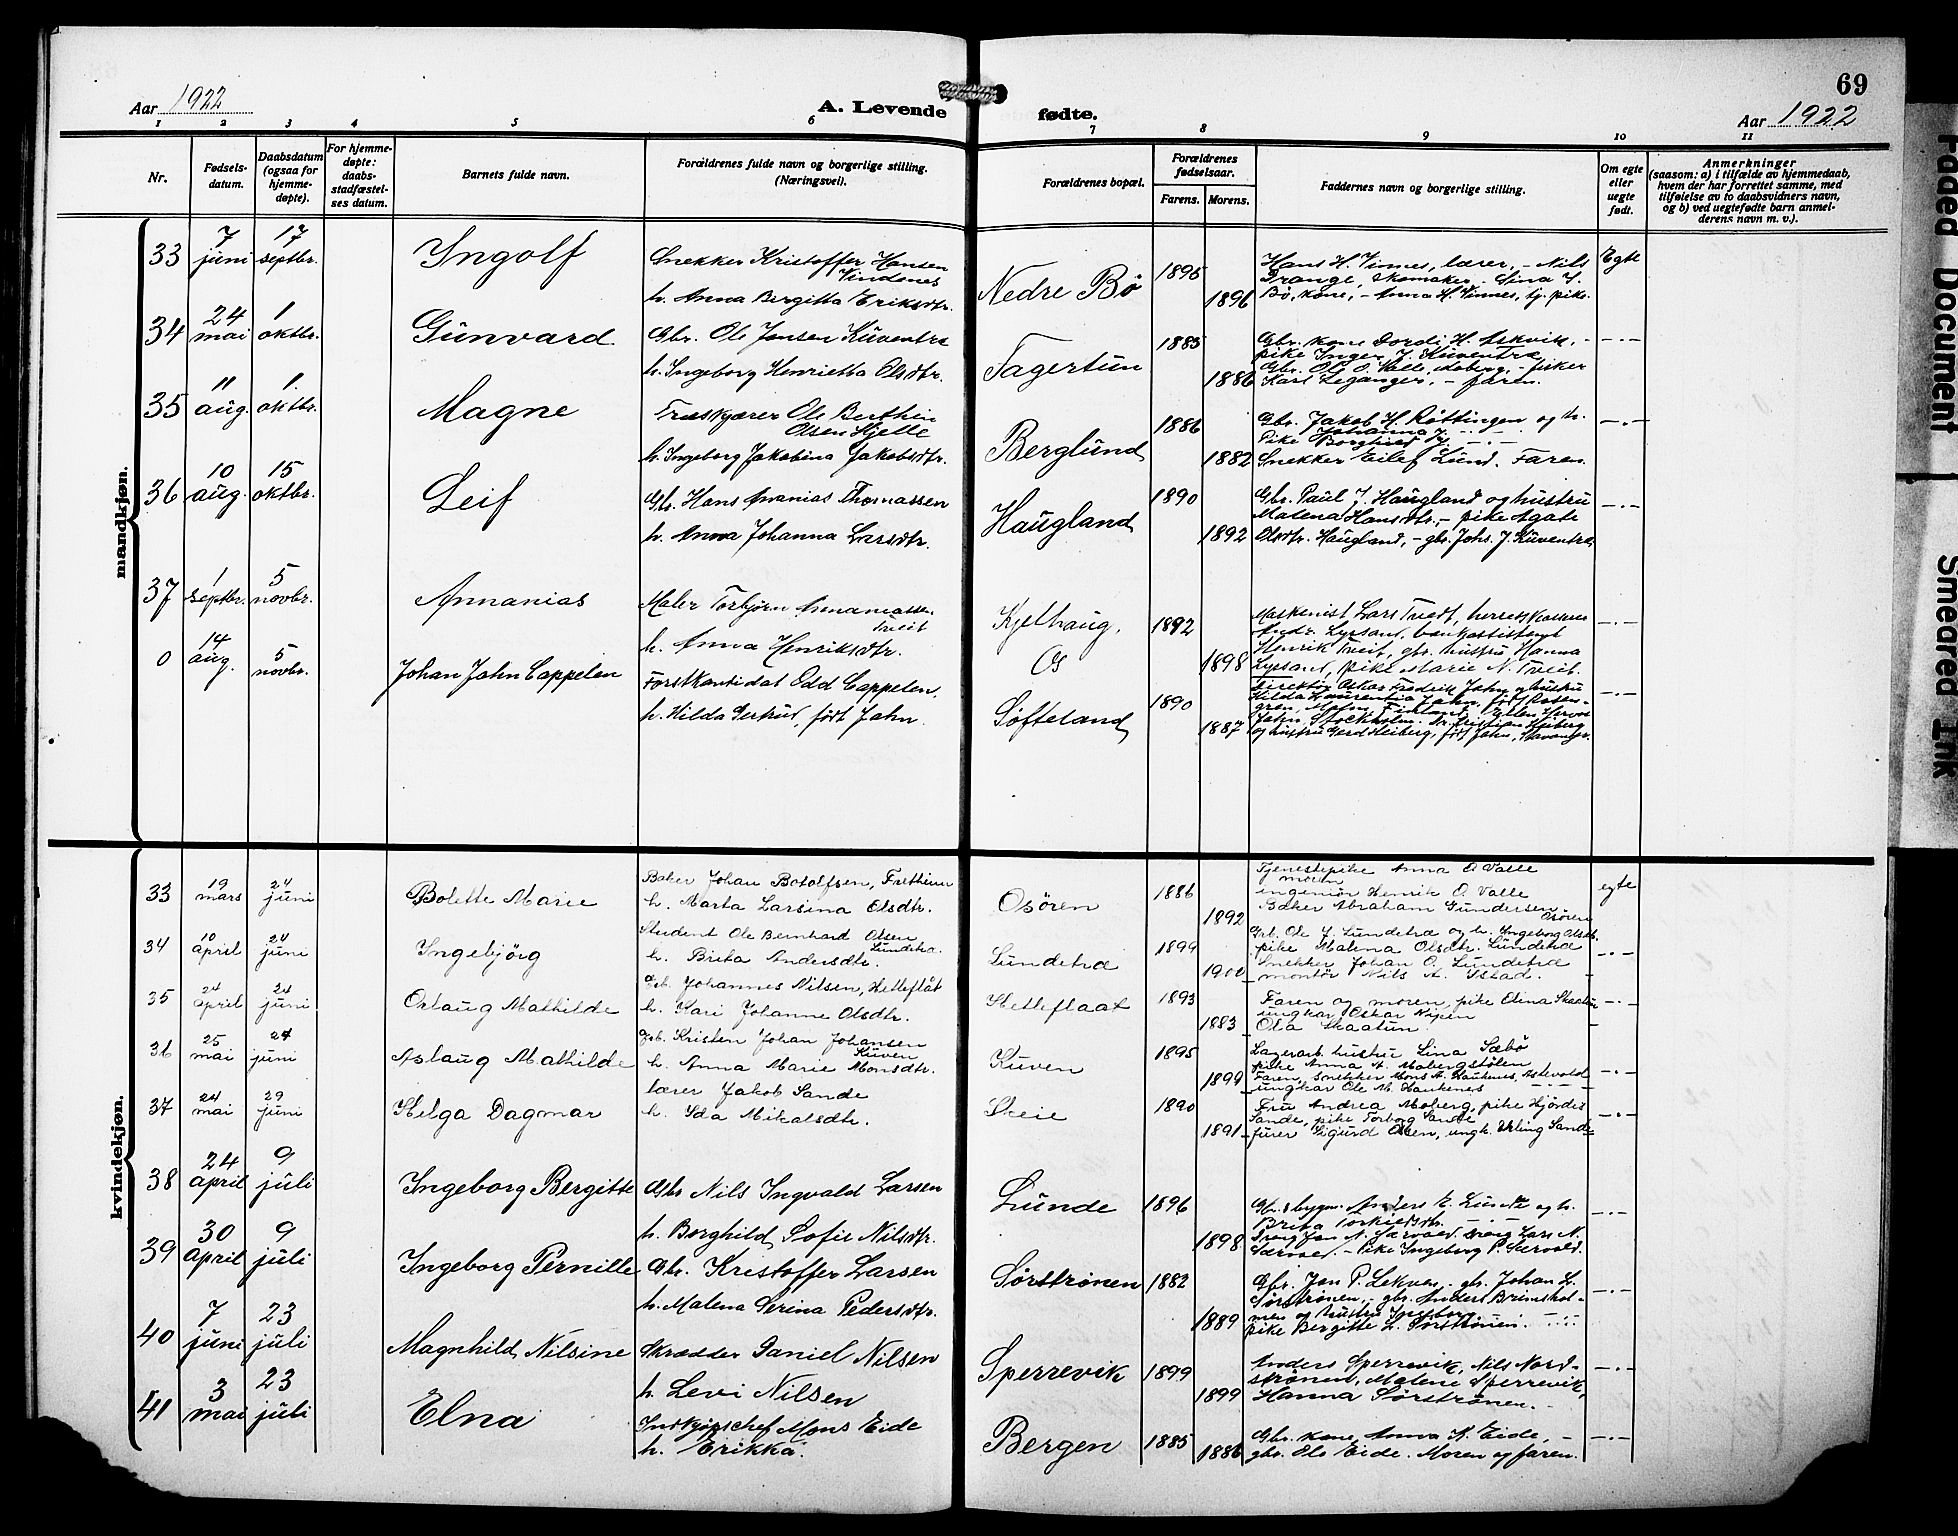 69
Aar 1922
A. Levende fødte.
Aar 1922
1 2 3 4 5 6 7 8 9 10 11
Nr.
Fødsels-
datum.
Daabsdatum
(ogsaa for
hjemme-
døpte).
For hjemme-
døpte:
daabs-
stadfæstel-
ses datum.
Barnets fulde navn.
Forældrenes fulde navn og borgerlige stilling.
(Næringsvei).
Forældrenes bopæl.
Forældrenes
fødselsaar.
Farens. Morens.
Faddernes navn og borgerlige stilling.
Om egte
eller
uegte
født.
Anmerkninger
(saasom: a) i tilfælde av hjemmedaab,
hvem der har forrettet samme, med
tilføielse av to daabsvidners navn,
og b) ved uegtefødte barn anmel-
derens navn m. v.).
mandkjøn.
33 7 juni 17 septbr. Ingolf
Snekker Kristoffer Hansen
Vindenes
h. Anna Bergitta Eriksdtr.
Nedre Bö 1895 1896
Hans H. Vinnes, lærer, - Nils
Drange, skomaker - Lina J.
Bö, kone, - Anna H. Vinnes, tj. pike.
Egte
34 24 mai 1 oktbr. Gunvard
Gbr. Ole Jansen Kuventræ
h. Ingeborg Henrietta Olsdtr.
Fagertun 1885 1886
Gbr. kone Dordi H. Askvik, -
pike Inger J. Kuventræ
Gbr. Ole O. Valle, Moberg, - fisker
Karl Leganger, - faren.
-·-
35 11 aug. 1 oktbr. Magne
Træskjærer Ole Berthin
Olsen Hjelle
h. Ingeborg Jakobina Jakobsdtr.
Berglund 1886 1882
Gbr. Jakob H. Røttingen og h.
Johanna
Pike Borghild J. -·-
Snekker Eilef Lund. Faren.
-·-
36 10 aug. 15 oktbr. Leif
Gbr. Hans Ananias Thomassen
h. Anna Johanna Larsdtr.
Haugland 1890 1892
Gbr. Paul J. Haugland og hustru
Malena Hansdtr., - pike Agate
Olsdtr. Haugland, - gbr. Johs. J. Kuventræ.
-·-
37 1 septbr. 5 novbr. Annanias
Maler Torbjörn Annaniassen
Tveit
h. Anna Henriksdtr.
Kjelhaug, Os 1892 1898
Maskenist Lars Tveit, herredskasserer
Andr. Lyssand,
Henrik Tveit, gbr. hustru Hanna
Lyssand, pike Marie N. Tveit.
-·-
0 14 aug. 5 novbr. Johan Jahn Cappelen
Forstkandidat Odd Cappelen,
h. Hilda Gertrud, født Jahn.
Søfteland 1890 1887
Direktør Oskar Fredrik Jahn og hustru
Hilda Laurentia Jahn, født Rosen-
gren, Finland,
Jahn, Stockholm. Dr. Kristian Heiberg
og hustru Gerd Heiberg, født Jahn, Stavanger.
-·-
kvindekjøn.
33 19 mars 24 juni Bolette Marie
Baker Johan Botolfsen, Fretheim
h. Marta Larsina Olsdtr.
Osören 1886 1892
Tjenestepike Anna O. Valle
moren
ingeniör Henrik O. Valle
Baker Abraham Gundersen
Osören
egte
34 10 april 24 juni Ingebjörg
Student Ole Bernhard Olsen
Lundetræ
h. Brita Andersdtr.
Lundetræ 1899 1900
Grb. Ole J. Lundetræ og h. Ingeborg Olsdtr.
pike Malena Olsdtr. Lundetræ
Snekker Johan O. Lundetræ
montör Nils A. Ystad.
-·-
35 24 april 24 juni Oslaug Mathilde
Grb. Johannes Nilsen, Hetleflåt
h. Kari Johanne Olsdtr.
Hetleflaat 1893 1883
Faren og moren, pike Elina Skaatun
ungkar Oskar Nipen
Ola Skaatun.
-·-
36 25 mai 24 juni Aslaug Mathilde
Grb. Kristen Johan Johansen
Kuven
h. Anna Marie Monsdtr.
Kuven 1895 1899
Lagerarb. hustru Lina Sæbö
pike Anna A. Mobergstölen
Faren, snekker Mons A. Haukenes, Austevold
ungkar Ole M. Haukenes
-·-
37 24 mai 29 juni Helga Dagmar
lærer Jakob Sande
h. Ida Mikalsdtr.
Skeie 1890 1891
Fru Andrea Moberg, pike Hjördis
Sande, pike Torborg Sande
furer Sigurd Olsen, ungk. Erling Sande
-·-
38 24 april 9 juli Ingeborg Bergitte
Gbr Nils Ingvald Larsen
h. Borghild Sofie Nilsdtr.
Lunde 1896 1898
Anders E. Lunde og h.
Brita Torkildsdtr.
Dreng Jan N. Særvold. Dreng Lars N.
Særvold. - Pike Ingeborg P. Særvold.
-·-
39 30 april 9 juli Ingeborg Pernille
Gbr. Kristoffer Larsen
h. Malena Serina Pedersdtr.
Sørstrønen 1882 1889
Gbr. Jon P. Lekven, - gbr. Johan L.
Sørstrønen, - gbr. Anders Brimshol-
men og hustru Ingeborg
pike Bergitte L. Sørstrønen.
-·-
40 7 juni 23 juli Magnhild Nilsine
Skrædder Daniel Nilsen
h. Levi Nilsen
Sperrevik 1899 1899
Anders Sperrevik, Nils Nord-
strønen, Malene Sperrevik,
Hanna Sørstrønen.
-·-
41 3 mai 23 juli Elna
Indkjøpschef Mons Eide
h. Erikka.
Bergen 1885 1886
Gbr. kone Anna K. Eide, -
gbr. Ole Eide. Moren og faren.
-·-
Faded Document
Smeared Ink